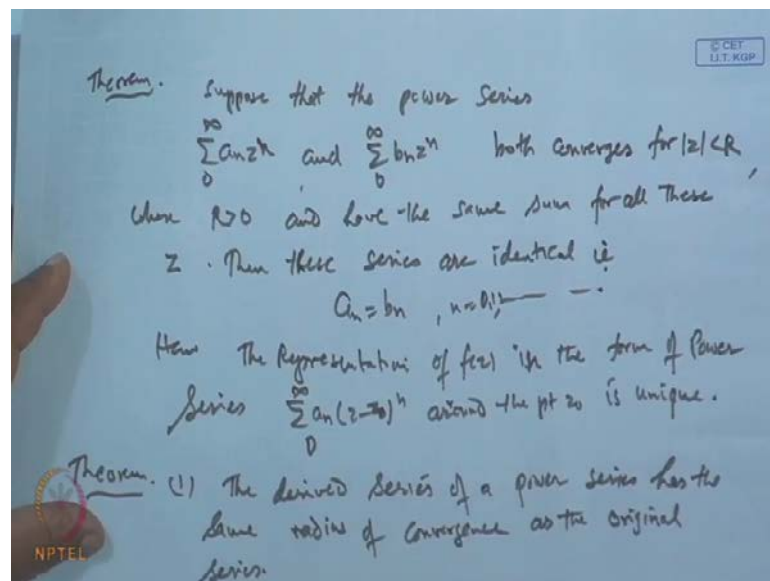 © CET
I.I.T. KGP
Theorem. Suppose that the power series
∞ ∞
∑ anzⁿ and ∑ bnzⁿ both converges for |z|<R,
0 0
where R>0 and have the same sum for all these
z. Then these series are identical ie
an = bn, n=0,1,— — .
Hence The Representation of f(z) in the form of Power
∞
Series ∑ an(z-z0)ⁿ around the pt z0 is unique.
0
Theorem. (1) The derived series of a power series has the
same radius of convergence as the original
series.
NPTEL